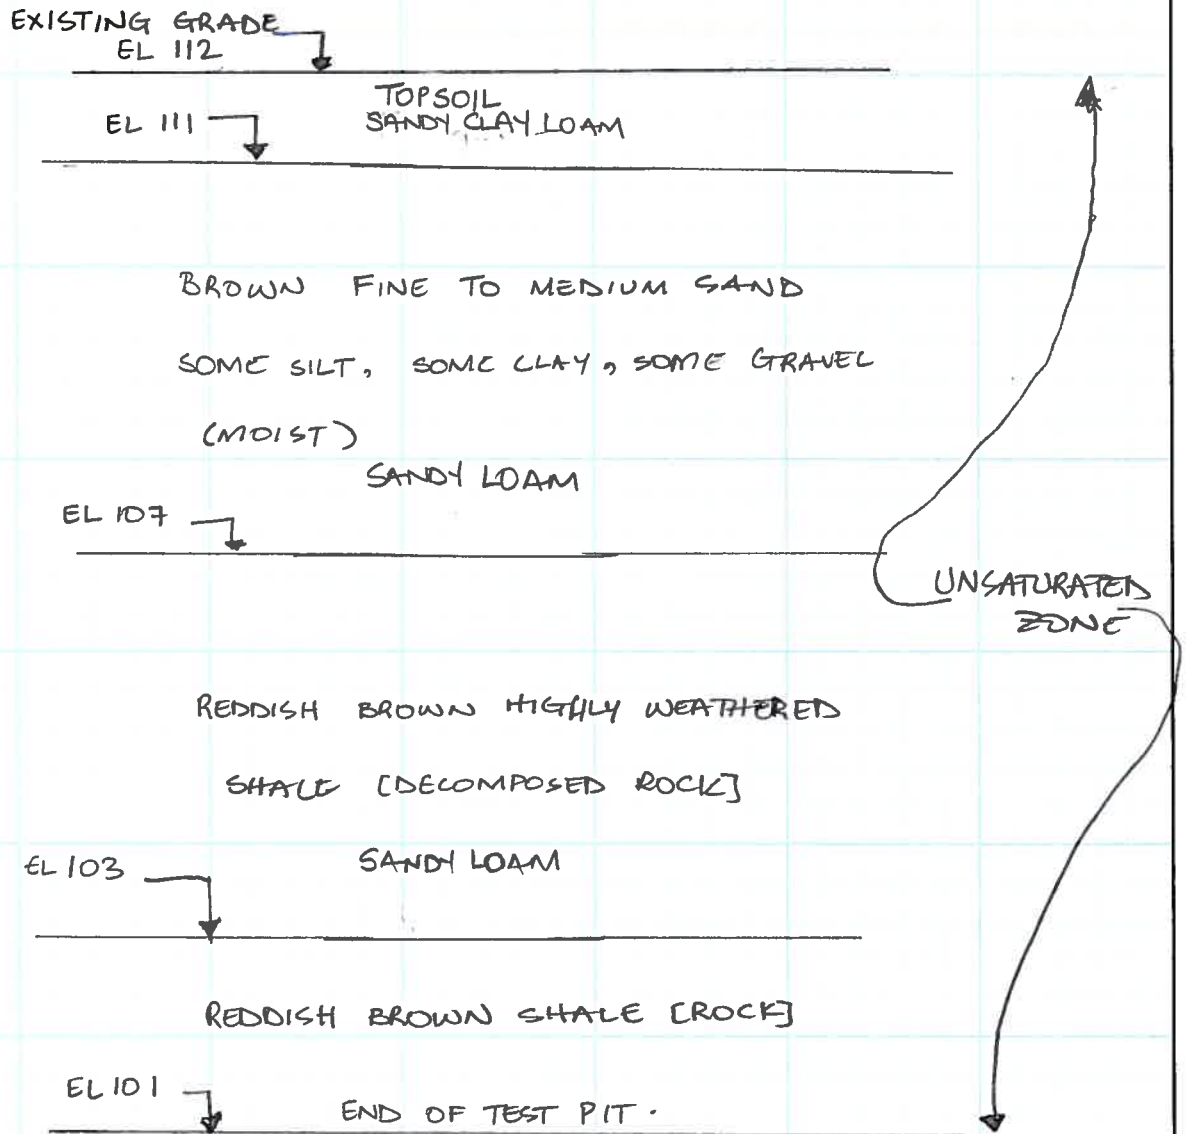 EXISTING GRADE
EL 112
TOPSOIL
EL 111
SANDY CLAY LOAM
BROWN FINE TO MEDIUM SAND
SOME SILT, SOME CLAY, SOME GRAVEL
(MOIST)
SANDY LOAM
EL 107
UNSATURATED
ZONE
REDDISH BROWN HIGHLY WEATHERED
SHALE [DECOMPOSED ROCK]
SANDY LOAM
EL 103
REDDISH BROWN SHALE [ROCK]
EL 101
END OF TEST PIT.